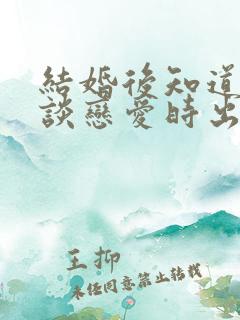 結婚後知道
談戀愛時出
王抑
未經同意禁止轉載